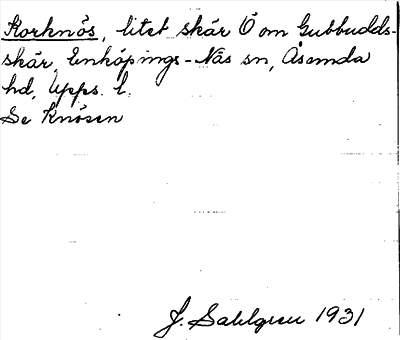 Korknös, litet skär Ö om Gubbudds-
skär, Enköpings-Näs sn, Åsunda
hd, Upps. l.
Se Knösen
J. Sahlgren 1931